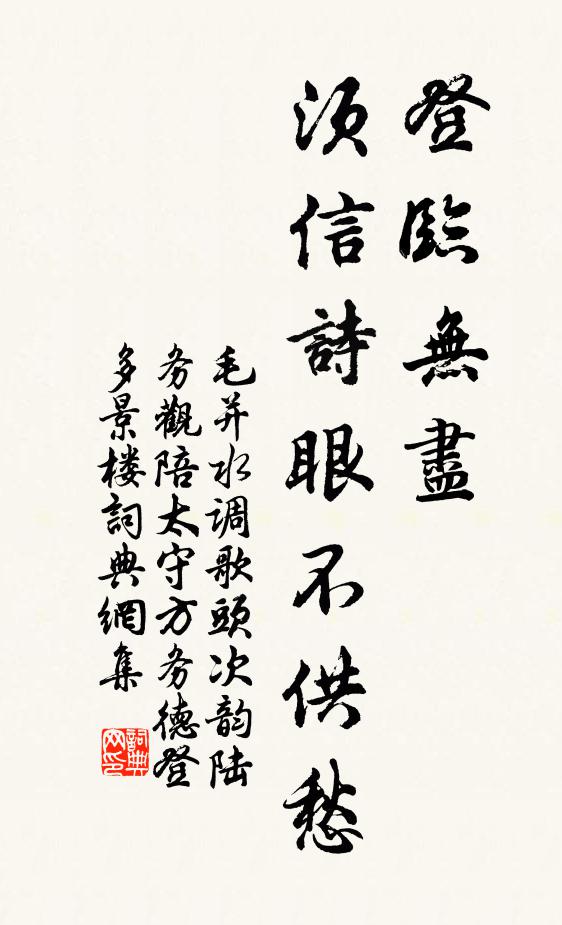 登臨無盡
須信詩眼不供愁
毛并水调歌頭次韵陆
务觀陪太守方务德登
多景楼詞典網集
詞典网印